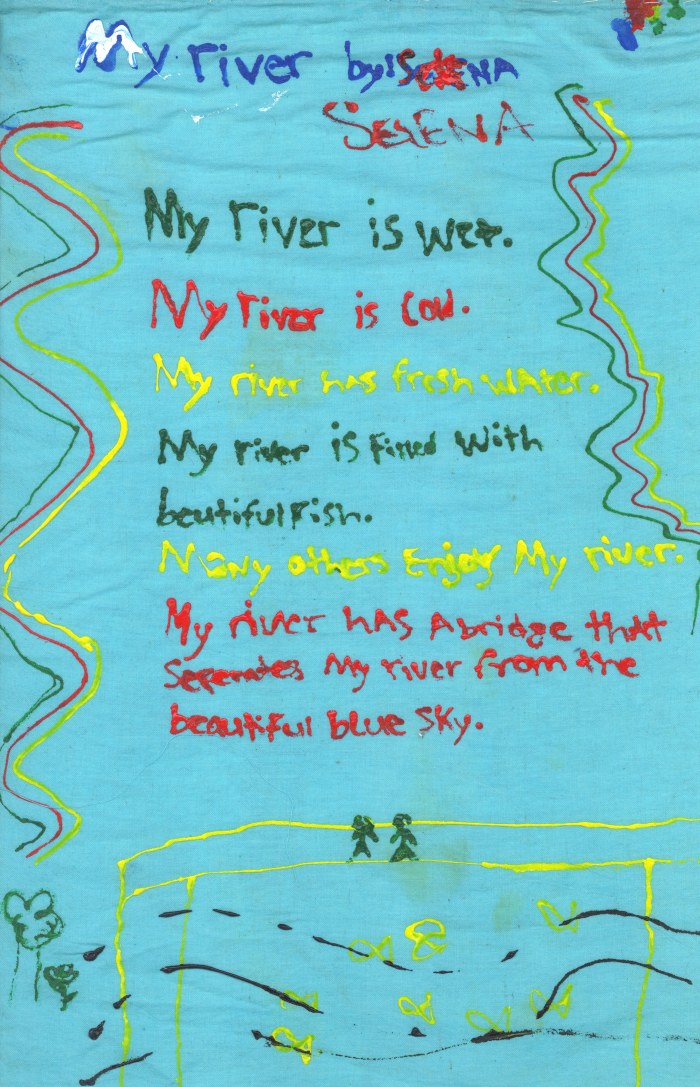 My river by: SELENA
SELENA
My river is wet.
My river is cold.
My river has fresh water.
My river is filled with
beutiful fish.
Many others Enjoy My river.
My river hAs A bridge that
seperates My river from the
beautiful blue sky.